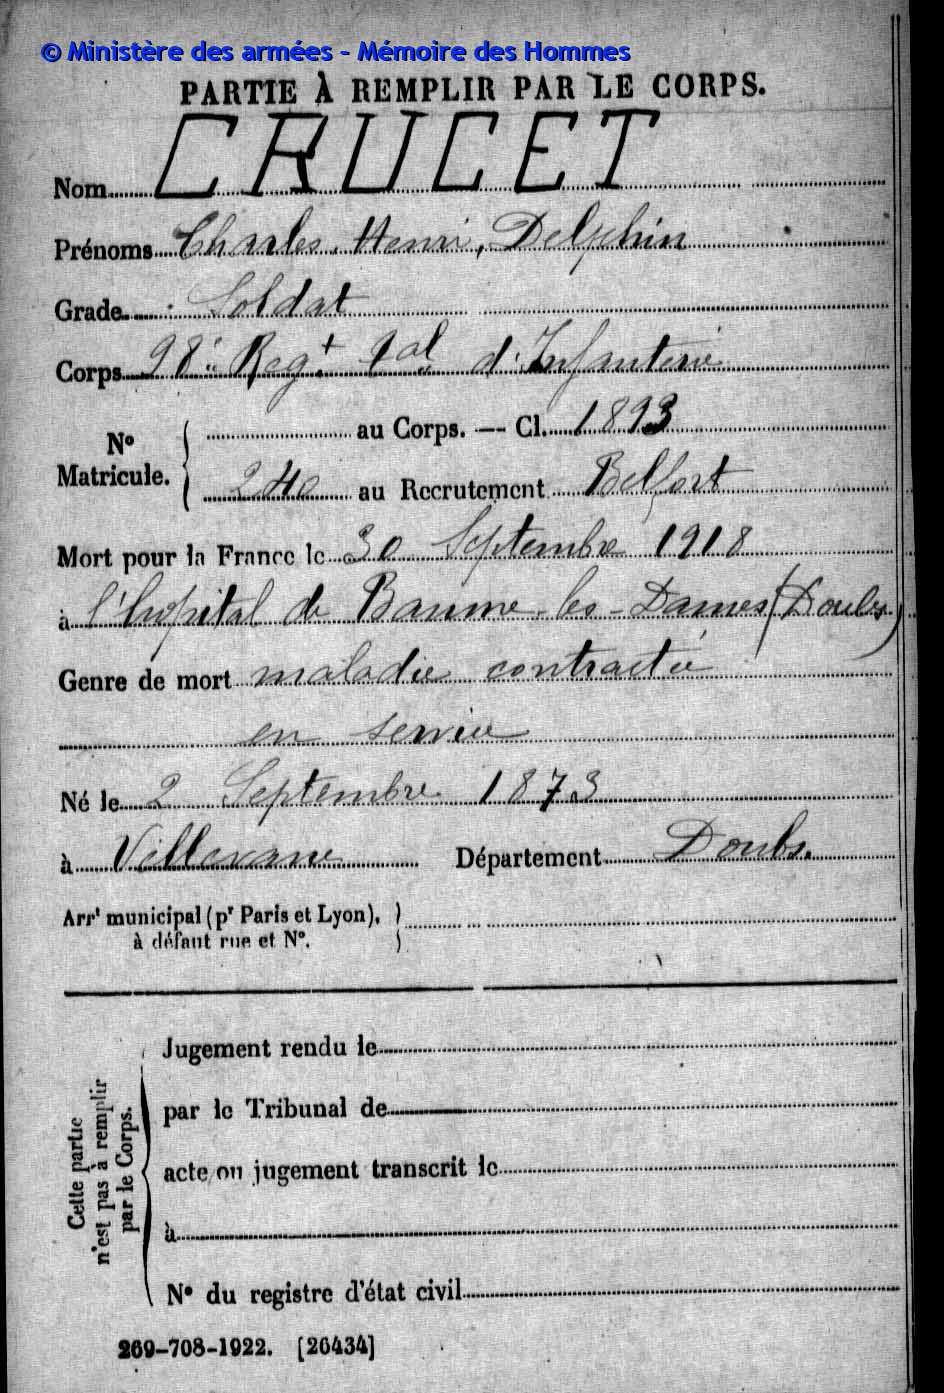 © Ministère des armées - Mémoire des Hommes
PARTIE À REMPLIR PAR LE CORPS.
Nom CRUCET
Prénoms Charles, Henri, Delphin
Grade Soldat
Corps 98e Regt tal d'Infanterie
N° Matricule. { au Corps. — Cl. 1893
240 au Recrutement Belfort
Mort pour la France le 30 Septembre 1918
à l'hôpital de Baume-les-Dames (Doubs)
Genre de mort maladie contractée
en service
Né le 2 Septembre 1873
à Département Doubs.
Arrt municipal (pr Paris et Lyon), }
à défaut rue et N°. }
Cette partie n'est pas à remplir par le Corps.
Jugement rendu le
par le Tribunal de
acte ou jugement transcrit le
à
N° du registre d'état civil
269-708-1922. [26434]